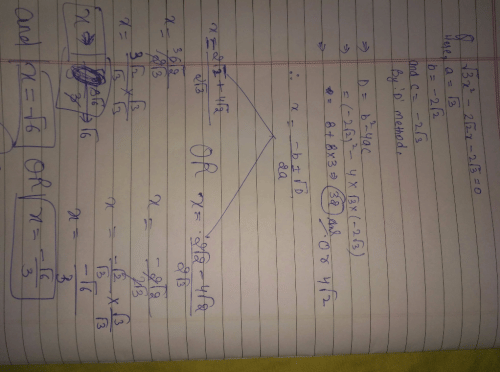 Q √3x² - 2√2x - 2√3 = 0
Here, a = √3
b = -2√2
and c = -2√3
By 'D' Method,
⇒ D = b² - 4ac
⇒ = (-2√2)² - 4 × √3 × (-2√3)
⇒ = 8 + 8×3 ⇒ 32 or 4√2
∴ x = -b ± √D / 2a
x = 2√2 + 4√2 / 2√3 OR x = 2√2 - 4√2 / 2√3
x = 6√2 / 2√3 x = -2√2 / 2√3
x = 3√2 / √3 × √3 / √3 x = -√2 / √3 × √3 / √3
x ⇒ ⇒ √6 x = -√6 / 3
and x = √6 OR x = -√6 / 3